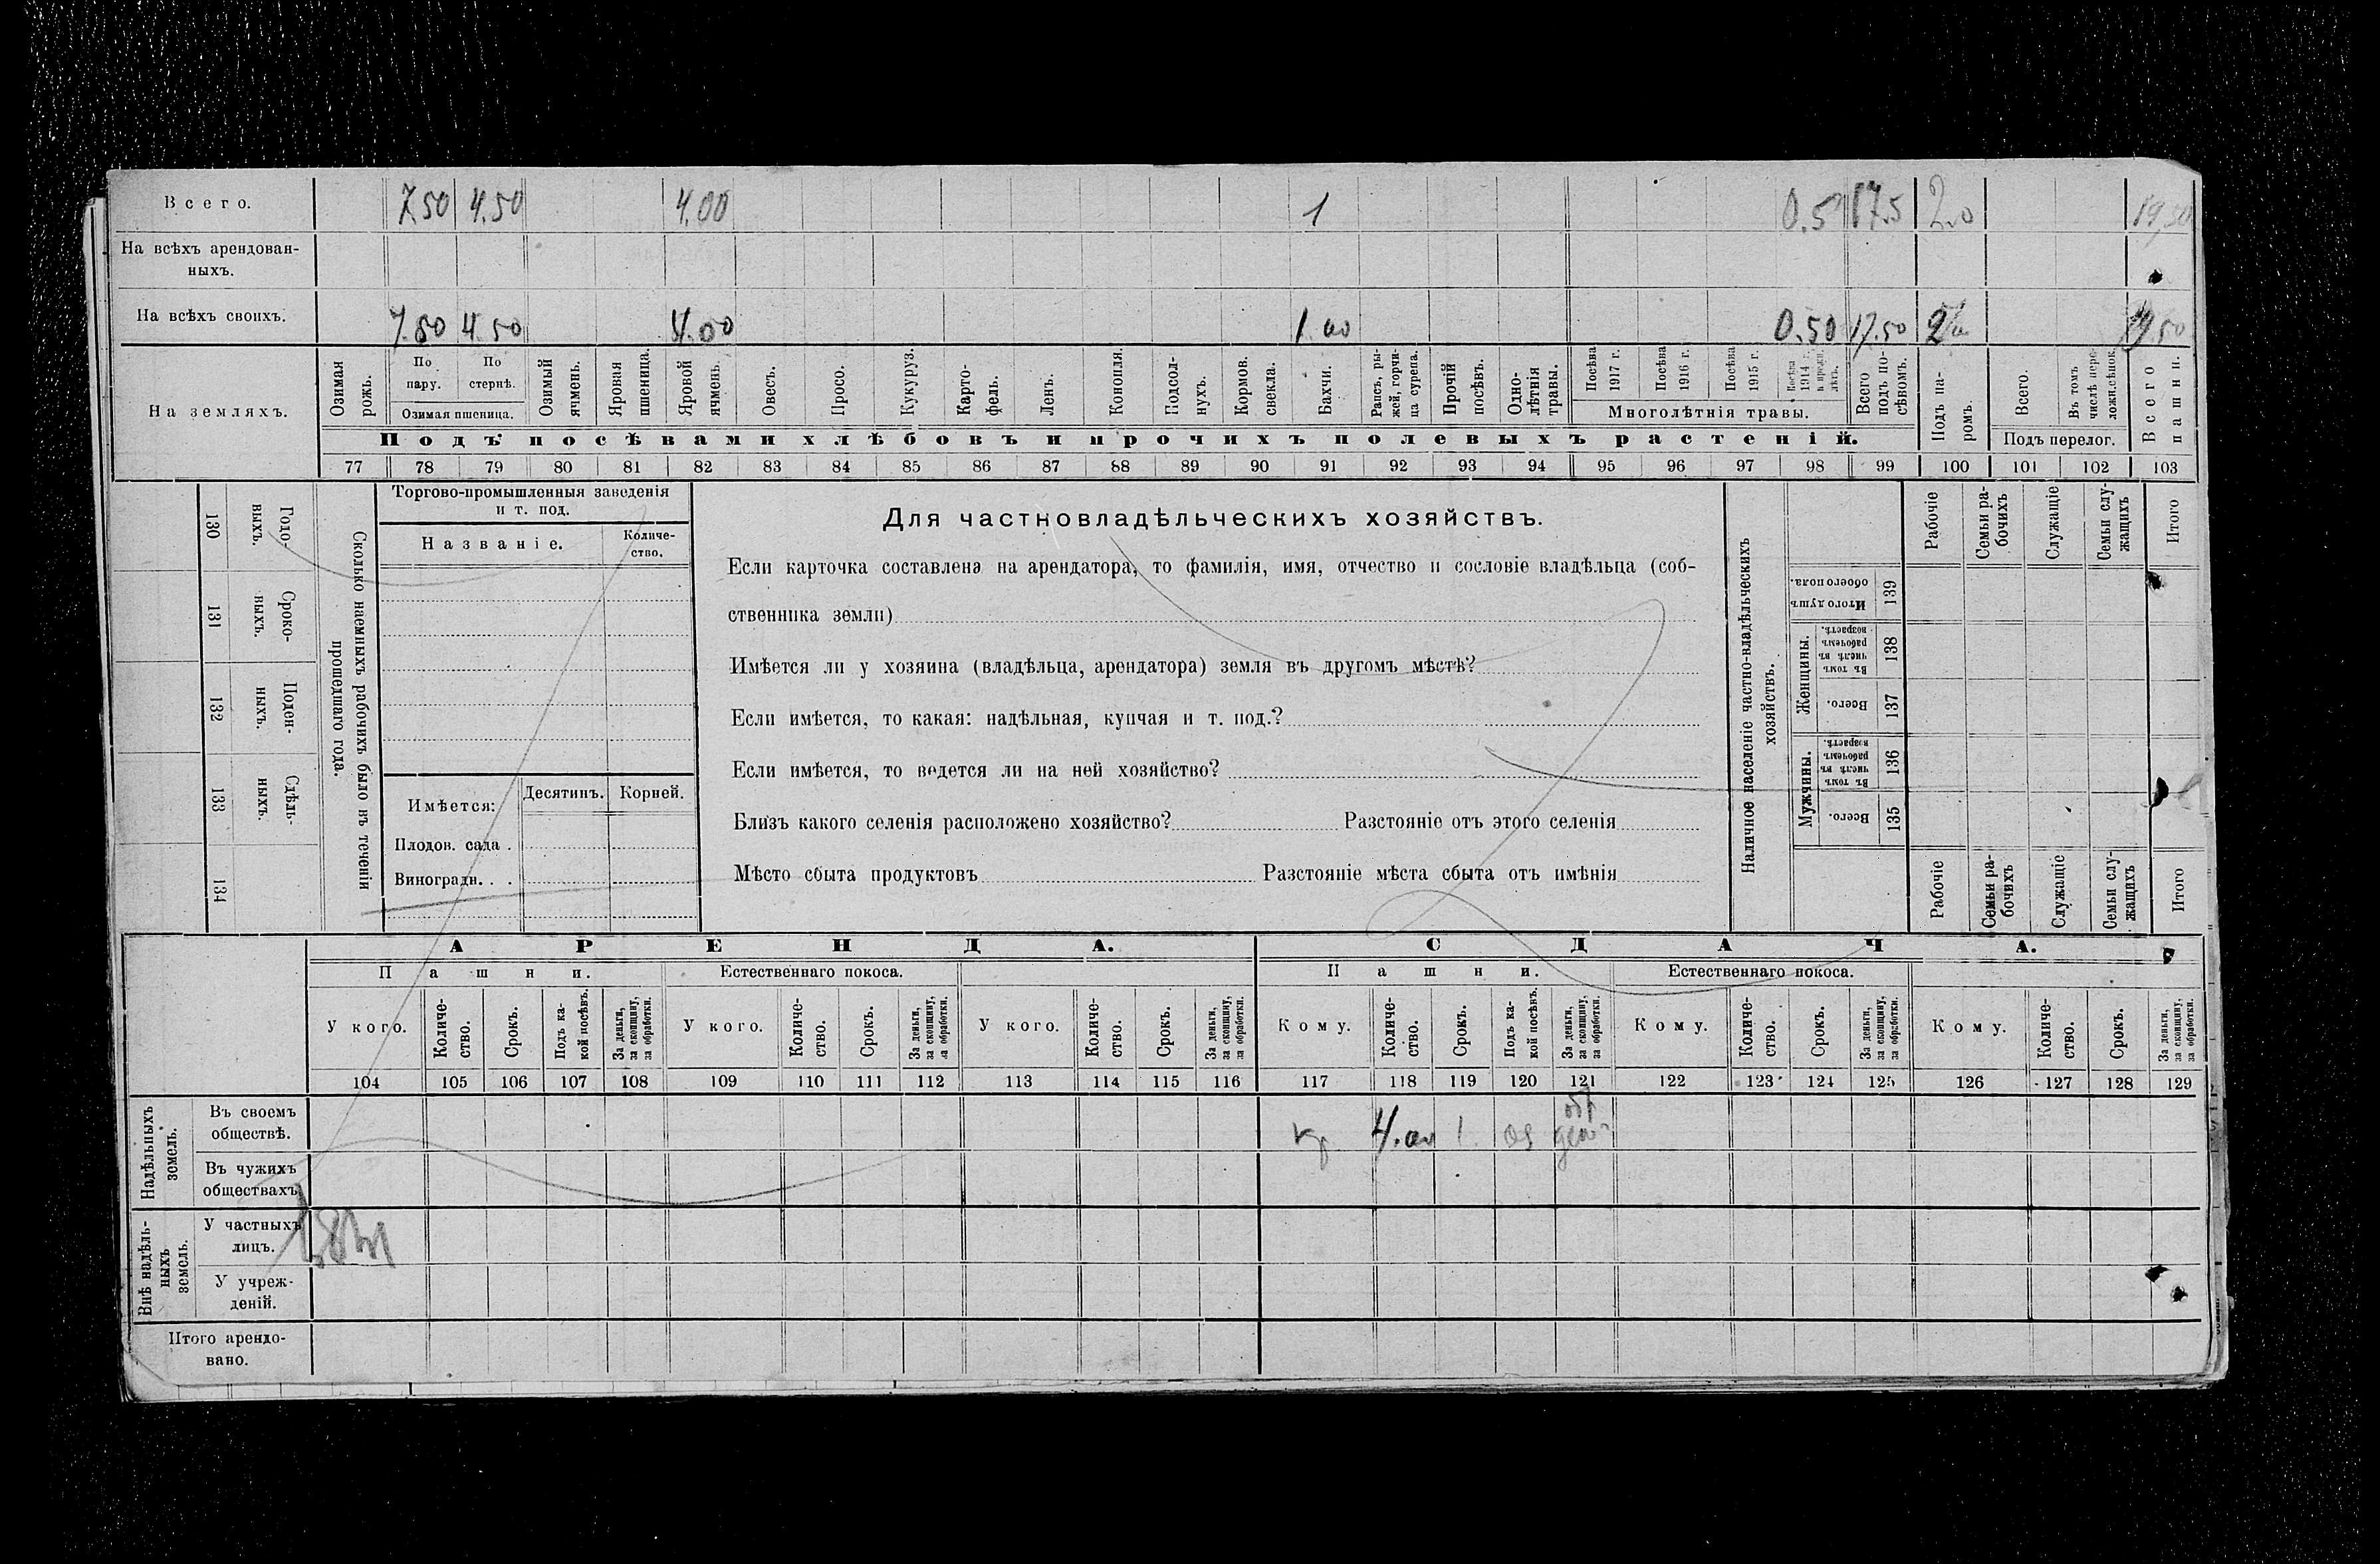 Всего. 7.50 4.50 4.00 1 0.5 17.5 2.0 19,50
На всѣхъ арендован-
ныхъ.
На всѣхъ своихъ. 7.50 4.50 4.00 1.00 0.50 17.50 19.50
На земляхъ.
Озимая рожь.
По пару.
По стернѣ.
Озимая пшеница.
Озимый ячмень.
Яровая пшеница.
Яровой ячмень.
Овесъ.
Просо.
Кукуруз.
Карто-
фель.
Ленъ.
Конопля.
Подсол-
нухъ.
Кормов. свекла.
Бахчи.
Рапсъ, ры-
жей, горчи-
ца сурепа.
Прочій посѣвъ.
Одно-
лѣтнія травы.
Посѣва 1917 г.
Посѣва 1916 г.
Посѣва 1915 г.
Посѣва 1914 г.
Многолѣтнія травы.
Всего подъ по-
сѣвомъ.
Подъ па-
ромъ.
Всего.
Въ томъ числѣ пере-
ложн.сѣнок.
Подъ перелог.
Всего пашни.
Подъ посѣвами хлѣбовъ и прочихъ полевыхъ растеній.
77 78 79 80 81 82 83 84 85 86 87 88 89 90 91 92 93 94 95 96 97 98 99 100 101 102 103
130 Годо-
выхъ.
131 Сроко-
выхъ.
132 Поден-
ныхъ.
133 Сдѣль-
ныхъ.
134
Сколько наемныхъ рабочихъ было въ теченіи
прошедшаго года.
Торгово-промышленныя заведенія
и т. под.
Названіе.
Количе-
ство.
Имѣется: Десятинъ. Корней.
Плодов. сада .
Виноградн. . .
Для частновладѣльческихъ хозяйствъ.
Если карточка составлена на арендатора, то фамилія, имя, отчество и сословіе владѣльца (соб-
ственника земли)
Имѣется ли у хозяина (владѣльца, арендатора) земля въ другомъ мѣстѣ?
Если имѣется, то какая: надѣльная, купчая и т. под.?
Если имѣется, то ведется ли на ней хозяйство?
Близъ какого селенія расположено хозяйство? Разстояніе отъ этого селенія
Мѣсто сбыта продуктовъ Разстояніе мѣста сбыта отъ имѣнія
Наличное населеніе частно-владѣльческихъ
хозяйствъ.
Рабочіе
Семьи ра-
бочихъ
Служащіе
Семьи слу-
жащихъ
Итого
Итого душъ обоего пола. 139
Женщины.
Въ томъ числѣ въ рабочемъ возрастѣ. 138
Всего. 137
Мужчины.
Въ томъ числѣ въ рабочемъ возрастѣ. 136
Всего. 135
Рабочіе
Семьи ра-
бочихъ
Служащіе
Семьи слу-
жащихъ
Итого
АРЕНДА. СДАЧА.
Пашни. Естественнаго покоса. Пашни. Естественнаго покоса.
У кого.
Количе-
ство.
Срокъ.
Подъ ка-
кой посѣвъ.
За деньги,
за скопщину,
за обработки.
У кого.
Количе-
ство.
Срокъ.
За деньги,
за скопщину,
за обработки.
У кого.
Количе-
ство.
Срокъ.
За деньги,
за скопщину,
за обработки.
Кому.
Количе-
ство.
Срокъ.
Подъ ка-
кой посѣвъ.
За деньги,
за скопщину,
за обработки.
Кому.
Количе-
ство.
Срокъ.
За деньги,
за скопщину,
за обработки.
Кому.
Количе-
ство.
Срокъ.
За деньги,
за скопщину,
за обработки.
104 105 106 107 108 109 110 111 112 113 114 115 116 117 118 119 120 121 122 123 124 125 126 127 128 129
Надѣльныхъ
земель.
Въ своемъ
обществѣ.
кр. 4.00 1. оз
Въ чужихъ
обществахъ
Внѣ надѣль-
ныхъ
земель.
У частныхъ
лицъ.
У учреж-
деній.
Итого арендо-
вано.